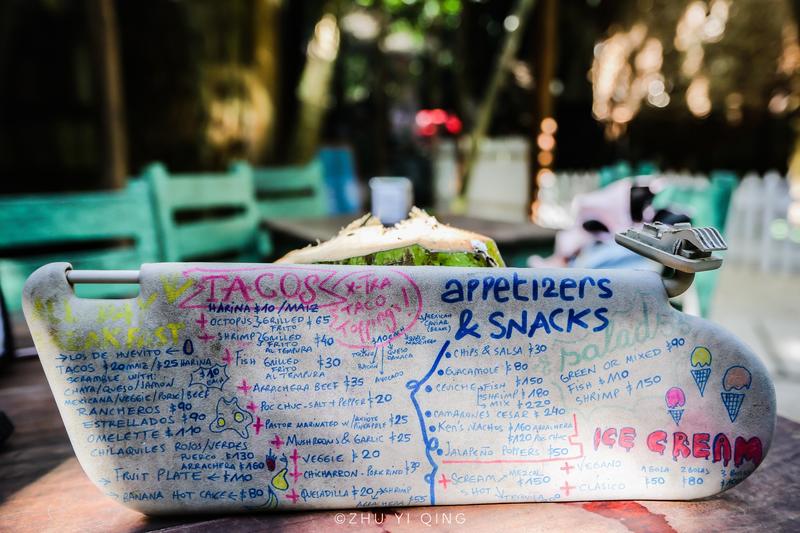 ALL DAY
BREAKFAST
→ LOS DE HUEVITO ←
TACOS $20 MAIZ/$25 HARINA
SCRAMBLE WITH:
CHAYA/QUESO/JAMON
MEXICANA/VEGGIE/PORK/BEEF
RANCHEROS $90
ESTRELLADOS $90
OMELETTE $110
CHILAQUILES ROJOS/VERDES
PUERCO $130
ARRACHERA $160
→ FRUIT PLATE ← $110
BANANA HOT CAKE $80
TACOS
HARINA $10/MAIZ
+ OCTOPUS GRILLED $65
FRITO
+ SHRIMP GRILLED $40
FRITO
AL TEMPURA
+ FISH GRILLED $30
FRITO
AL TEMPURA
+ ARRACHERA BEEF $35
+ POC CHUC - SALT + PEPPER $20
+ PASTOR MARINATED W/ AXIOTE PINEAPPLE $25
+ MUSHROOMS & GARLIC $25
+ VEGGIE $20
+ CHICHARRON - PORK RIND $30
+ QUESADILLA $20 SHRIMP
ARRACHERA $55
X-TRA
TACO
Toppings!
$10 EACH
QUESO
BANANA
BACON
AVOCADO
MEXICAN
CAVIAR
appetizers
& SNACKS
• CHIPS & SALSA $30
• GUACAMOLE $80
• CEVICHE FISH $150
SHRIMP $180
MIX $220
• CAMARONES CESAR $240
• KEN'S NACHOS $160 ARRACHERA
$120 POC CHUC
• JALAPEÑO POPPERS $50
+ SCREAM MEZCAL $150
SHOT
salads
GREEN OR MIXED $90
FISH $110
SHRIMP $150
ICE CREAM
+ VEGANO
1 BOLA 2 BOLAS 3 BOLAS
$50 $80
+ CLÁSICO
©ZHU YI QING